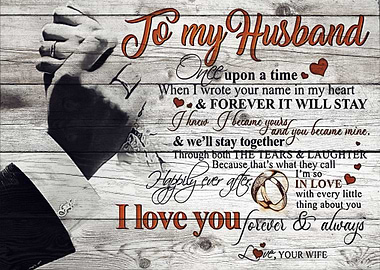 To my Husband
Once upon a time
When I wrote your name in my heart
& FOREVER IT WILL STAY
I knew I became yours
and you became mine,
& we'll stay together
Through both THE TEARS & LAUGHTER
Because that's what they call
Happily ever after
I'm so
IN LOVE
with every little
thing about you
I love you forever & always
Love, YOUR WIFE